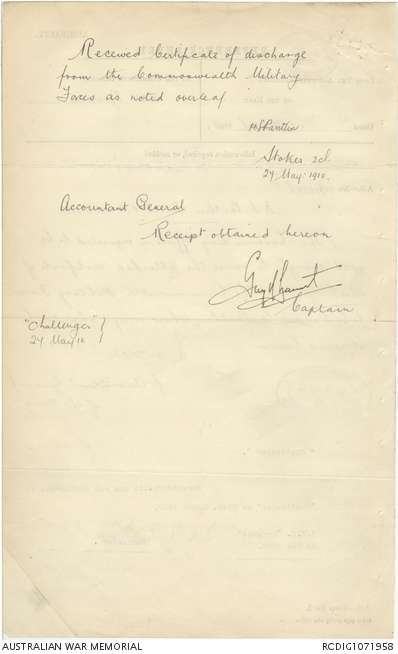 Received Certificate of discharge
from the Commonwealth Military
Forces as noted overleaf
Stoker 2cl.
24 May 1910.
Accountant General
Receipt obtained hereon
Captain
"Challenger" }
24 May 10
AUSTRALIAN WAR MEMORIAL
RCDIG1071958